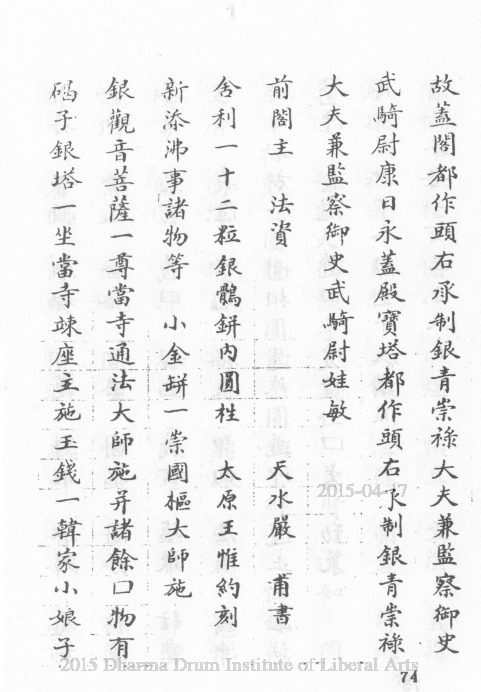 故蓋閣都作頭右承制銀青崇祿大夫兼監察御史
武騎尉康日永蓋殿寶塔都作頭右承制銀青崇祿
大夫兼監察御史武騎尉娃敏
前閣主 法資 天水嚴 甫書
舍利一十二粒銀鶻缾內圓 大原王惟約刻
新添沸事諸物等 小金缾一崇國樞大師施
銀觀音菩薩一尊當寺通法大師施并諸餘口物有
碢子銀塔一坐當寺竦座主施玉錢一韓家小娘子
2015-04-17
2015 Dharma Drum Institute of Liberal Arts
74